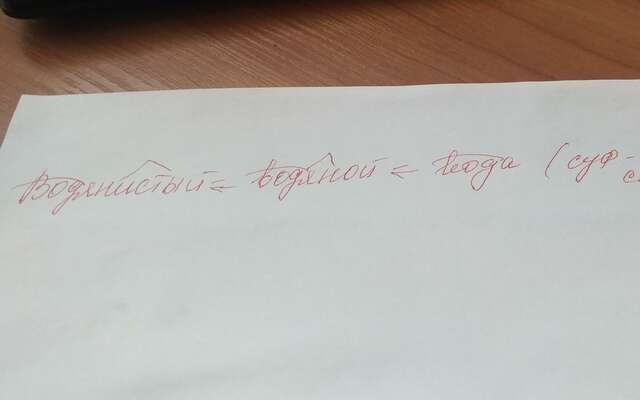 Водянистый ← водяной ← вода (суф-